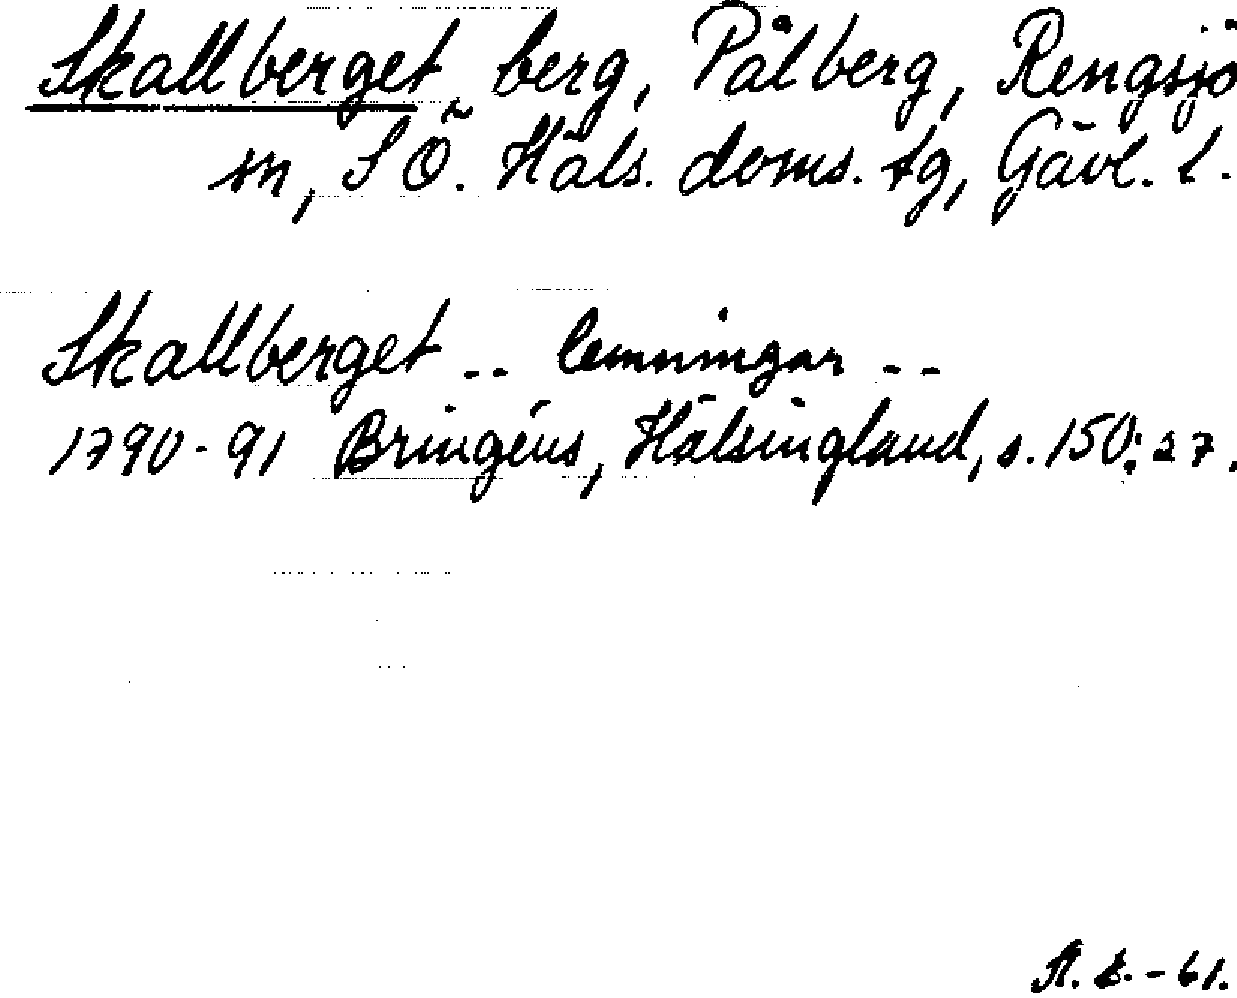 Skallberget berg, Pålberg, Rengsjö
sn, SÖ. Häls. doms. tg, Gävl. l.
Skallberget -- lemningar --
1790-91 Bringéus, Hälsingland, s. 150: 27.
-61.